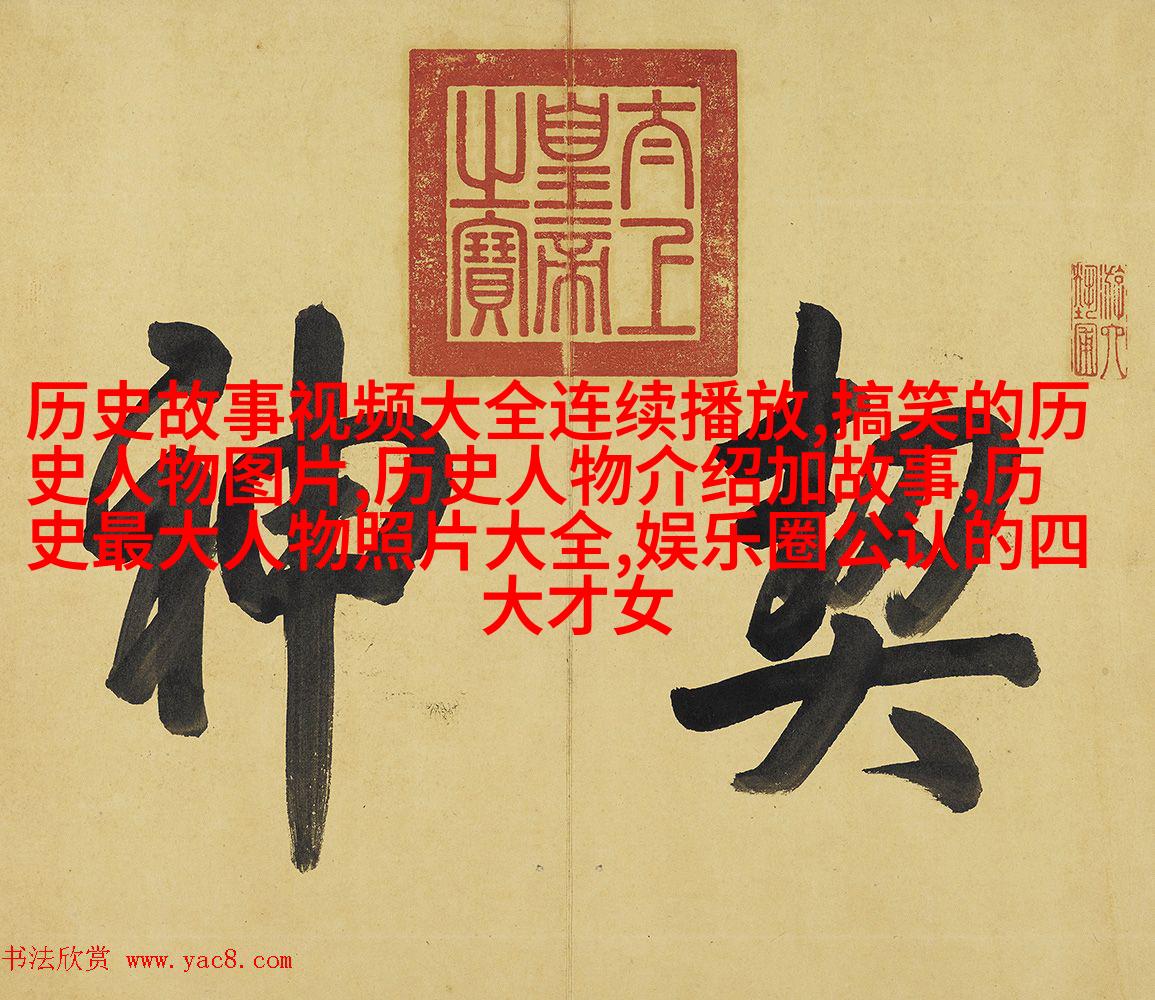 太上
皇帝
之寶
游六
藝圃
契神
历史故事视频大全连续播放,搞笑的历
史人物图片,历史人物介绍加故事,历
史最大人物照片大全,娱乐圈公认的四
大才女
书法欣赏 www.yac8.com